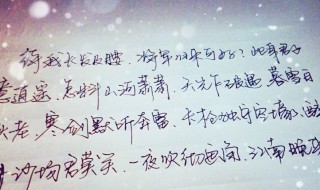 待我长发及腰,将军归来可好?此身君子
意逍遥,怎料山河萧萧。天光乍破遇,暮雪白
头老。寒剑默听奔雷,长枪独守空壕。醉
沙场君莫笑,一夜吹彻画角。江南晚